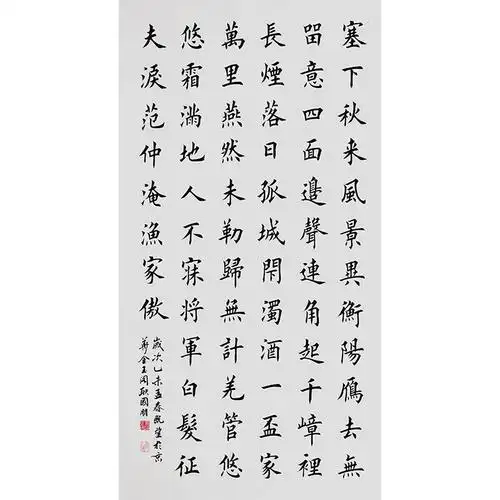 塞下秋来風景異衡陽鴈去無
畱意四面邊聲連角起千嶂裡
長煙落日孤城閇濁酒一盃家
萬里燕然未勒歸無計羌管悠
悠霜滿地人不寐將軍白髮征
夫淚范仲淹漁家傲
歲次乙未孟春既望於京
華金玉閣耿國